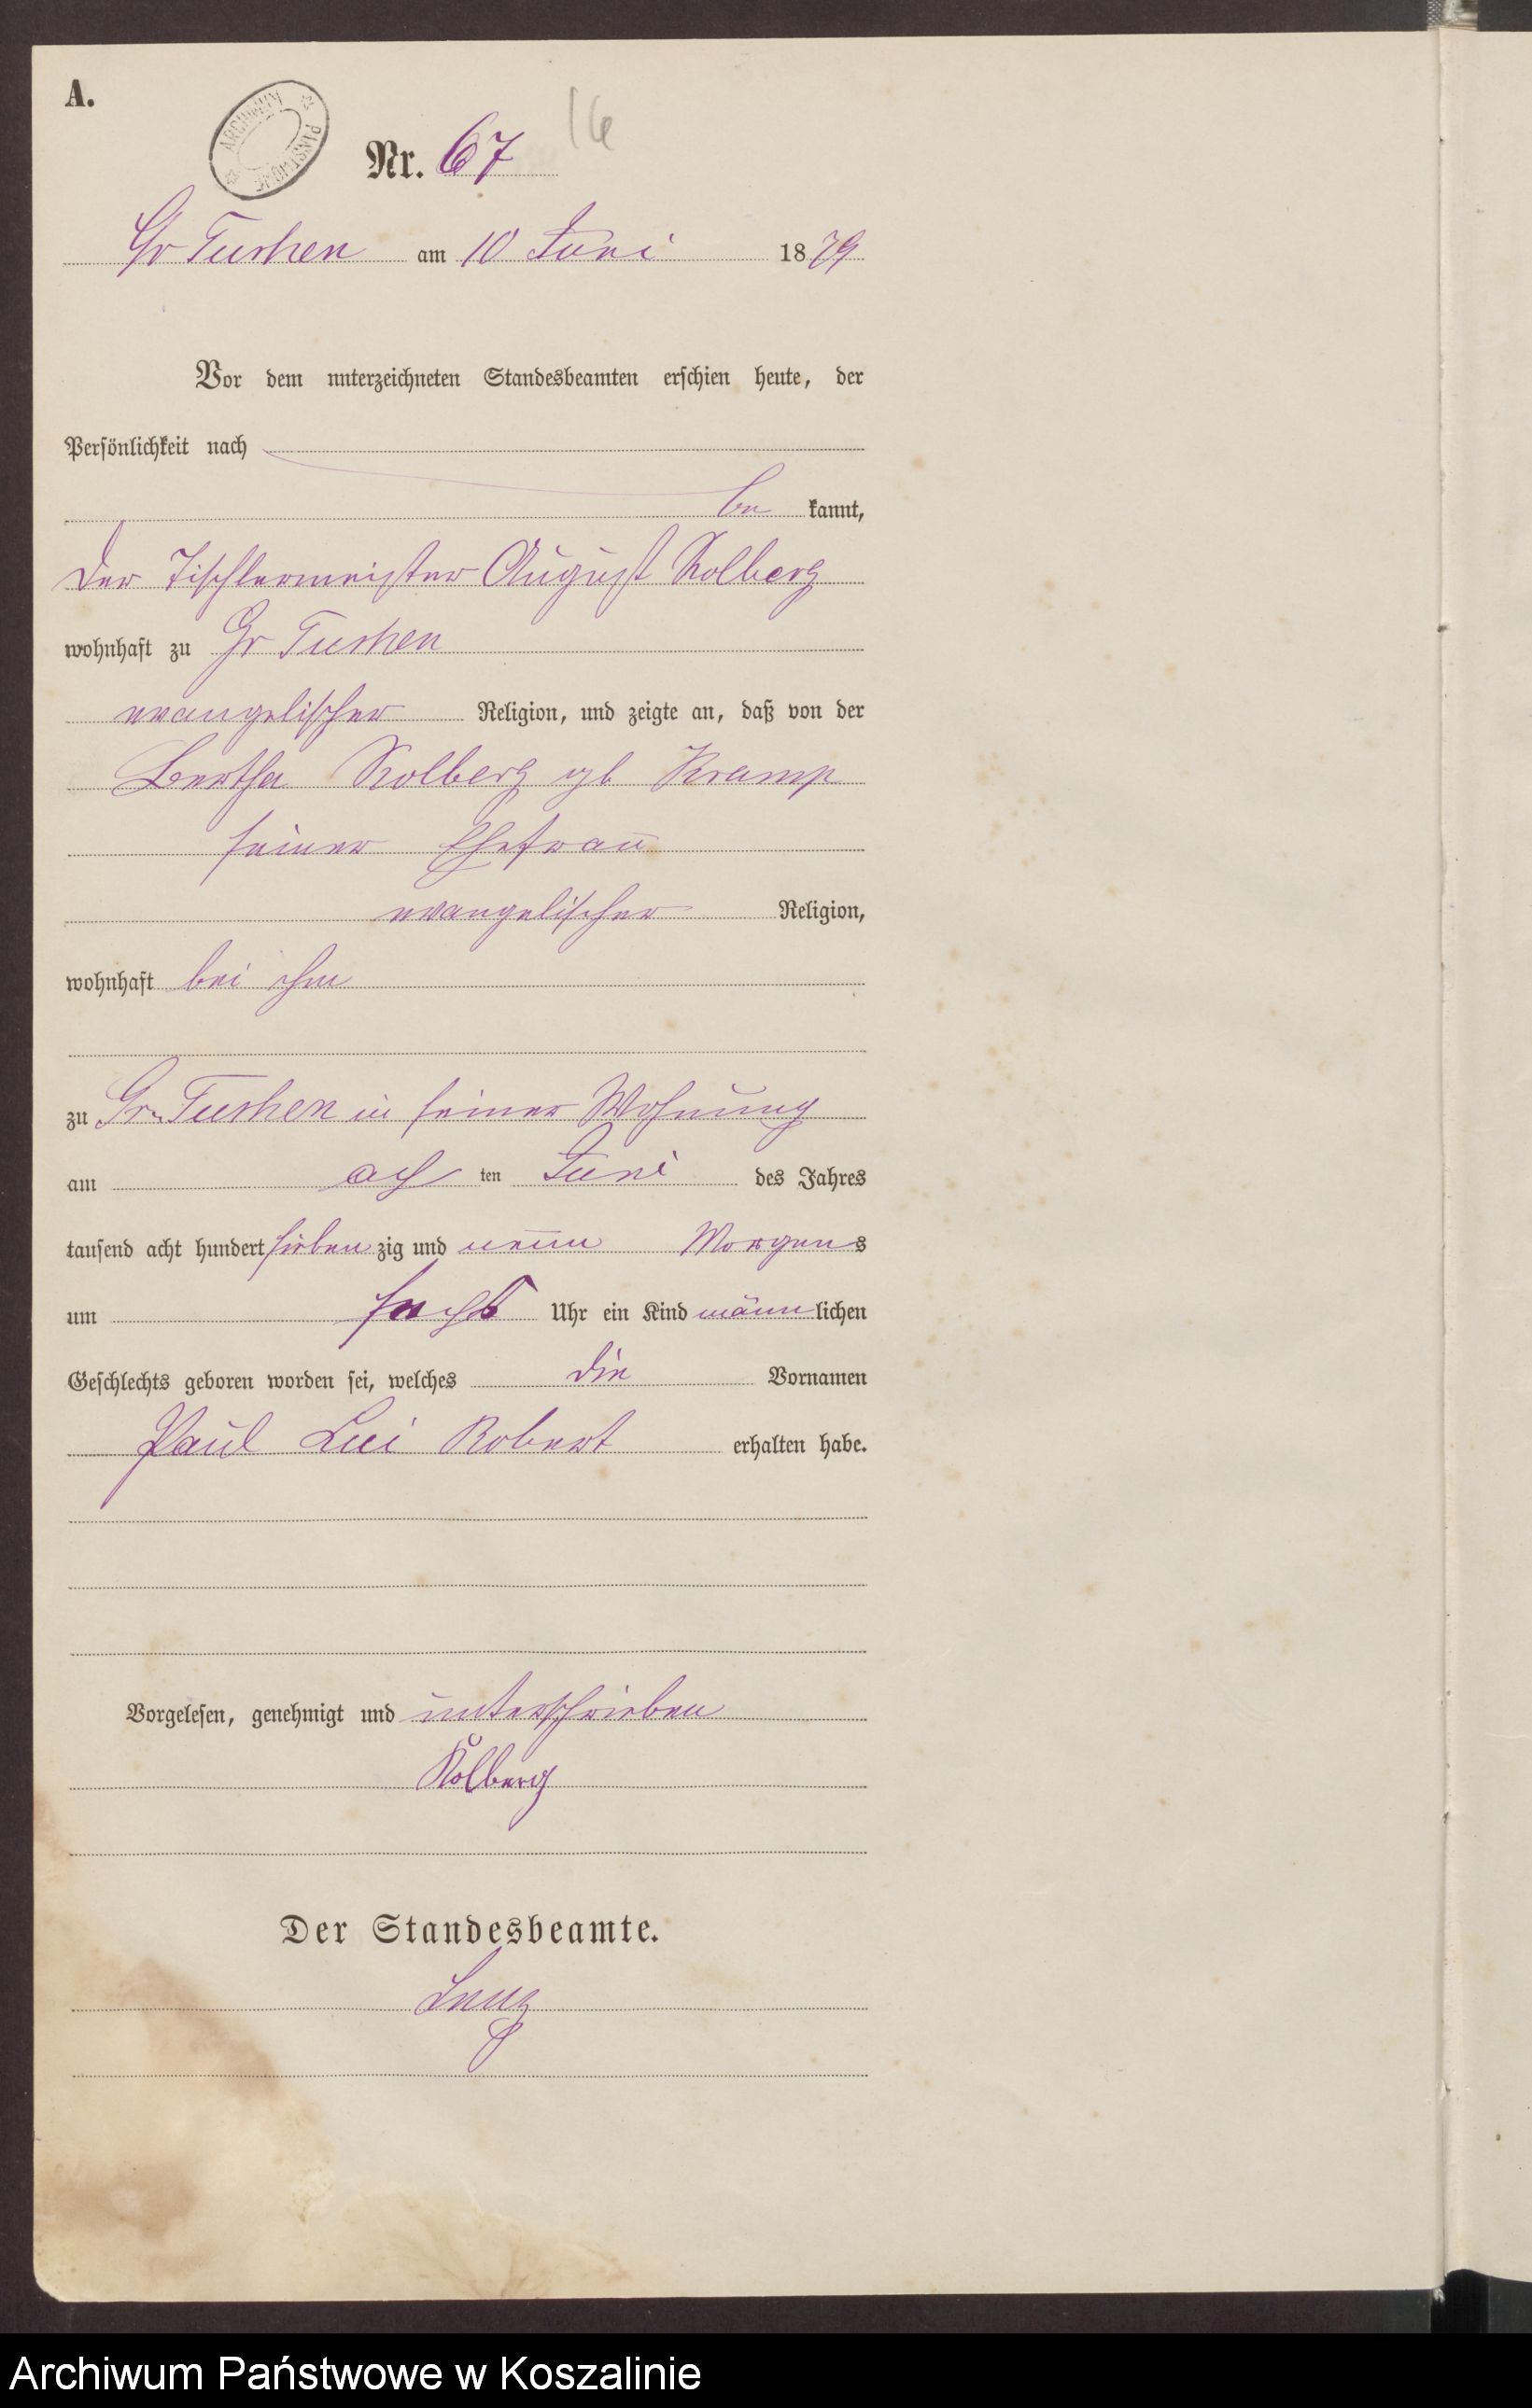 A.
ARCHIWUM PAŃSTWOWE
16
Nr. 67
Gr Tuchen am 10 Juni 1879
Vor dem unterzeichneten Standesbeamten erschien heute, der
Persönlichkeit nach
be kannt,
der Tischlermeister August Kolberg
wohnhaft zu Gr Tuchen
evangelischer Religion, und zeigte an, daß von der
Bertha Kolberg gb Kramp
seiner Ehefrau
evangelischer Religion,
wohnhaft bei ihm
zu Gr. Tuchen in seiner Wohnung
am ach ten Juni des Jahres
tausend acht hundert sieben zig und neun Morgens
um sechs Uhr ein Kind männ lichen
Geschlechts geboren worden sei, welches die Vornamen
Paul Lui Robert erhalten habe.
Vorgelesen, genehmigt und unterschrieben
Kolberg
Der Standesbeamte.
Lenz
Archiwum Państwowe w Koszalinie